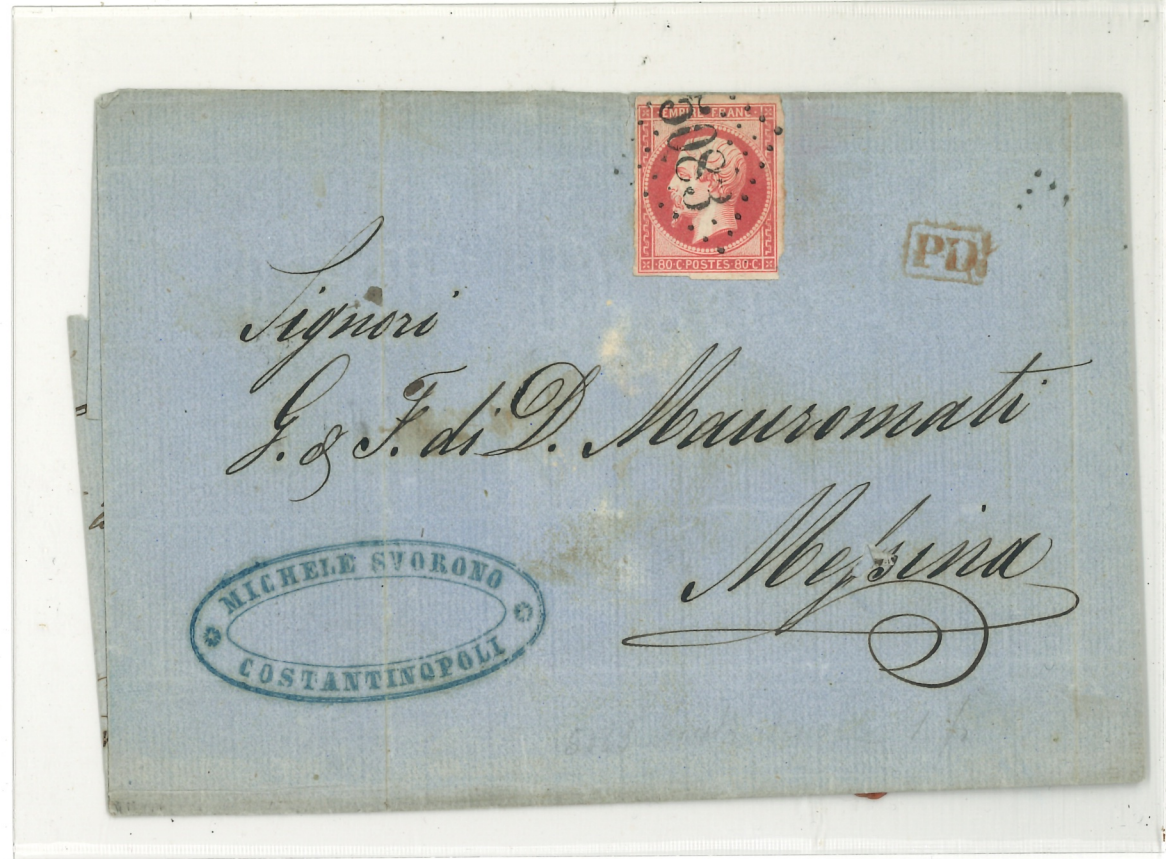 EMPIRE FRANC
3083
80·C·POSTES·80·C·
PD
Signori
G. & F. di D. Mauromati
Messina
MICHELE SVORONO
COSTANTINOPOLI